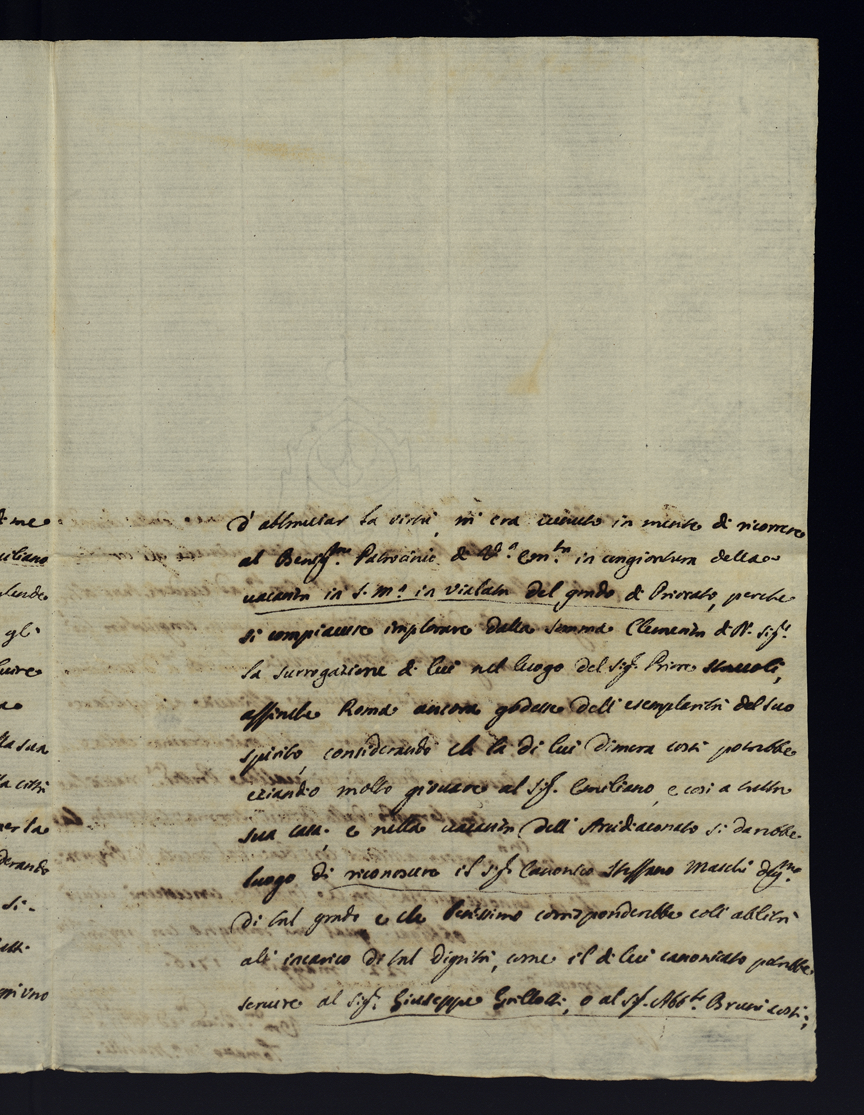 d' abbracciar la virtù, mi era venuto in mente di ricorrere
al Benig.mo Patrocinio di V.a Em.za in congiontura della
vacanza in S. M.a in Vialata del grado di Priorato, perche
si compiacesse implorare dalla somma Clemenza di N. Sig.re
la surrogazione di lui nel luogo del Sig.r Priore Staccoli,
affinche Roma ancora godesse dell' esemplarità del suo
spirito, considerando che la di lui dimora costì potrebbe
eziandio molto giovare al Sig.r Emiliano, e così a tutta
sua casa. e nella vacanza dell' Arcidiaconato si darebbe
luogo di riconoscere il Sig.r Canonico Steffano Macchi deg.mo
di tal grado e che benissimo corrisponderebbe coll' abilità
all' incarico di tal dignità, come il di lui canonicato potrebbe
servire al Sig.r Giuseppe Grillotti, o al Sig.r Abb.te Bruni costì;